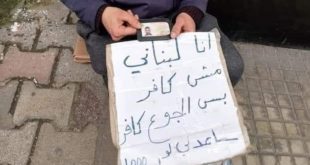 انا لبناني
مش كافر
بس الجوع كافر
ساعدني لو
1000